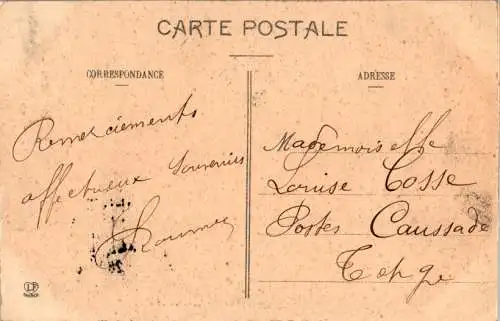 CARTE POSTALE
CORRESPONDANCE
Remerciements
affectueux souvenirs
ADRESSE
Mademoiselle
Louise Cosse
Postes Caussade
T et G e